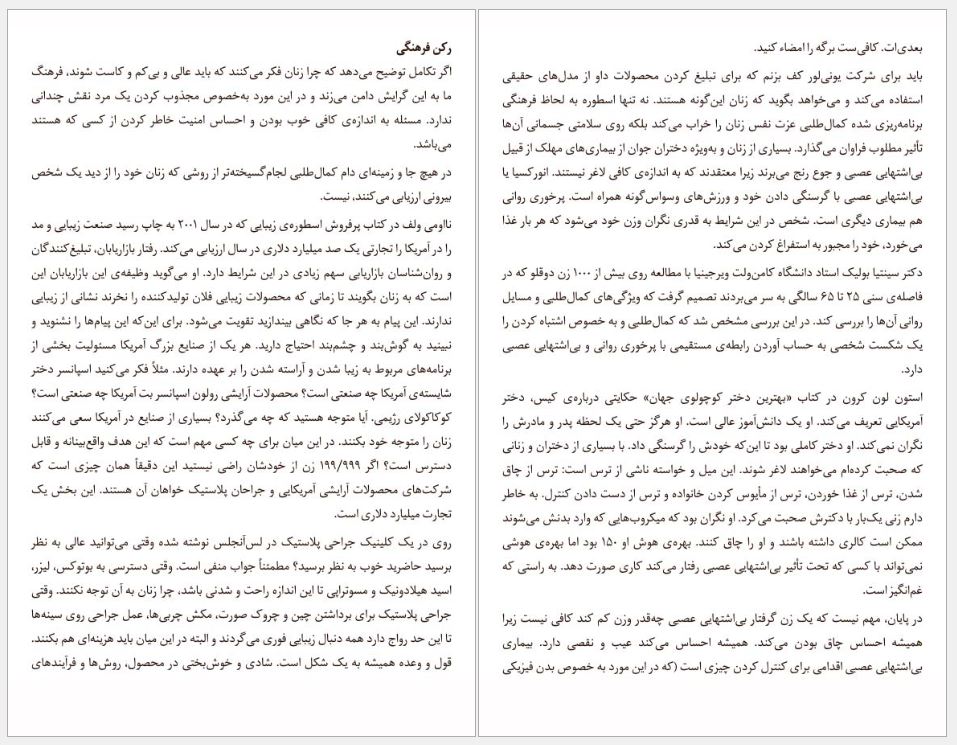 رکن فرهنگی
اگر تکامل توضیح می‌دهد که چرا زنان فکر می‌کنند که باید عالی و بی‌کم و کاست شوند، فرهنگ
ما به این گرایش دامن می‌زند و در این مورد به‌خصوص مجذوب کردن یک مرد نقش چندانی
ندارد. مسئله به اندازه‌ی کافی خوب بودن و احساس امنیت خاطر کردن از کسی که هستند
می‌باشد.
در هیچ جا و زمینه‌ای دام کمال‌طلبی لجام‌گسیخته‌تر از روشی که زنان خود را از دید یک شخص
بیرونی ارزیابی می‌کنند، نیست.
نااومی ولف در کتاب پرفروش اسطوره‌ی زیبایی که در سال ۲۰۰۱ به چاپ رسید صنعت زیبایی و مد
را در آمریکا را تجارتی یک صد میلیارد دلاری در سال ارزیابی می‌کند. رفتار بازاریابان، تبلیغ‌کنندگان
و روان‌شناسان بازاریابی سهم زیادی در این شرایط دارد. او می‌گوید وظیفه‌ی این بازاریابان این
است که به زنان بگویند تا زمانی که محصولات زیبایی فلان تولیدکننده را نخرند نشانی از زیبایی
ندارند. این پیام به هر جا که نگاهی بیندازید تقویت می‌شود. برای این‌که این پیام‌ها را نشنوید و
نبینید به گوش‌بند و چشم‌بند احتیاج دارید. هر یک از صنایع بزرگ آمریکا مسئولیت بخشی از
برنامه‌های مربوط به زیبا شدن و آراسته شدن را بر عهده دارند. مثلاً فکر می‌کنید اسپانسر دختر
شایسته‌ی آمریکا چه صنعتی است؟ محصولات آرایشی رولون اسپانسر بت آمریکا چه صنعتی است؟
کوکاکولای رژیمی. آیا متوجه هستید که چه می‌گذرد؟ بسیاری از صنایع در آمریکا سعی می‌کنند
زنان را متوجه خود بکنند. در این میان برای چه کسی مهم است که این هدف واقع‌بینانه و قابل
دسترس است؟ اگر ۱۹۹/۹۹۹ زن از خودشان راضی نیستید این دقیقاً همان چیزی است که
شرکت‌های محصولات آرایشی آمریکایی و جراحان پلاستیک خواهان آن هستند. این بخش یک
تجارت میلیارد دلاری است.
روی در یک کلینیک جراحی پلاستیک در لس‌آنجلس نوشته شده وقتی می‌توانید عالی به نظر
برسید حاضرید خوب به نظر برسید؟ مطمئناً جواب منفی است. وقتی دسترسی به بوتوکس، لیزر،
اسید هیلادونیک و مسوتراپی تا این اندازه راحت و شدنی باشد، چرا زنان به آن توجه نکنند. وقتی
جراحی پلاستیک برای برداشتن چین و چروک صورت، مکش چربی‌ها، عمل جراحی روی سینه‌ها
تا این حد رواج دارد همه دنبال زیبایی فوری می‌گردند و البته در این میان باید هزینه‌ای هم بکنند.
قول و وعده همیشه به یک شکل است. شادی و خوش‌بختی در محصول، روش‌ها و فرآیندهای
بعدی‌ات. کافی‌ست برگه را امضاء کنید.
باید برای شرکت یونی‌لور کف بزنم که برای تبلیغ کردن محصولات داو از مدل‌های حقیقی
استفاده می‌کند و می‌خواهد بگوید که زنان این‌گونه هستند. نه تنها اسطوره به لحاظ فرهنگی
برنامه‌ریزی شده کمال‌طلبی عزت نفس زنان را خراب می‌کند بلکه روی سلامتی جسمانی آن‌ها
تأثیر مطلوب فراوان می‌گذارد. بسیاری از زنان و به‌ویژه دختران جوان از بیماری‌های مهلک از قبیل
بی‌اشتهایی عصبی و جوع رنج می‌برند زیرا معتقدند که به اندازه‌ی کافی لاغر نیستند. انورکسیا یا
بی‌اشتهایی عصبی با گرسنگی دادن خود و ورزش‌های وسواس‌گونه همراه است. پرخوری روانی
هم بیماری دیگری است. شخص در این شرایط به قدری نگران وزن خود می‌شود که هر بار غذا
می‌خورد، خود را مجبور به استفراغ کردن می‌کند.
دکتر سینتیا بولیک استاد دانشگاه کامن‌ولث ویرجینیا با مطالعه روی بیش از ۱۰۰۰ زن دوقلو که در
فاصله‌ی سنی ۲۵ تا ۶۵ سالگی به سر می‌بردند تصمیم گرفت که ویژگی‌های کمال‌طلبی و مسایل
روانی آن‌ها را بررسی کند. در این بررسی مشخص شد که کمال‌طلبی و به خصوص اشتباه کردن را
یک شکست شخصی به حساب آوردن رابطه‌ی مستقیمی با پرخوری روانی و بی‌اشتهایی عصبی
دارد.
استون لون کرون در کتاب «بهترین دختر کوچولوی جهان» حکایتی درباره‌ی کیس، دختر
آمریکایی تعریف می‌کند. او یک دانش‌آموز عالی است. او هرگز حتی یک لحظه پدر و مادرش را
نگران نمی‌کند. او دختر کاملی بود تا این‌که خودش را گرسنگی داد. با بسیاری از دختران و زنانی
که صحبت کرده‌ام می‌خواهند لاغر شوند. این میل و خواسته ناشی از ترس است: ترس از چاق
شدن، ترس از غذا خوردن، ترس از مأیوس کردن خانواده و ترس از دست دادن کنترل. به خاطر
دارم زنی یک‌بار با دکترش صحبت می‌کرد. او نگران بود که میکروب‌هایی که وارد بدنش می‌شوند
ممکن است کالری داشته باشند و او را چاق کنند. بهره‌ی هوش او ۱۵۰ بود اما بهره‌ی هوشی
نمی‌تواند با کسی که تحت تأثیر بی‌اشتهایی عصبی رفتار می‌کند کاری صورت دهد. به راستی که
غم‌انگیز است.
در پایان، مهم نیست که یک زن گرفتار بی‌اشتهایی عصبی چه‌قدر وزن کم کند کافی نیست زیرا
همیشه احساس چاق بودن می‌کند. همیشه احساس می‌کند عیب و نقصی دارد. بیماری
بی‌اشتهایی عصبی اقدامی برای کنترل کردن چیزی است (که در این مورد به خصوص بدن فیزیکی